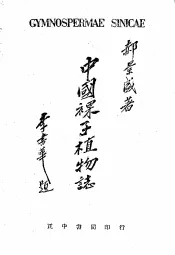 GYMNOSPERMAE SINICAE
郝景盛著
中國裸子植物誌
李書華題
正中書局印行